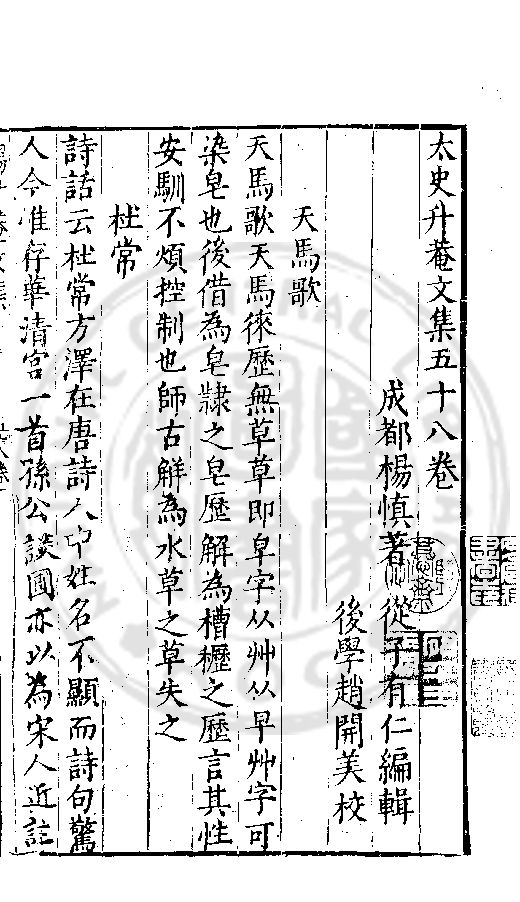 太史升菴文集五十八卷
成都楊慎著 從子有仁編輯
後學趙開美校
天馬歌
天馬歌天馬徠歷無草草即皁字从艸从早艸字可
染皂也後借為皂隷之皂歷解為槽櫪之歷言其性
安馴不煩控制也師古解為水草之草失之
杜常
詩話云杜常方澤在唐詩人中姓名不顯而詩句驚
人今惟存華清宮一首孫公談圃亦以為宋人近註